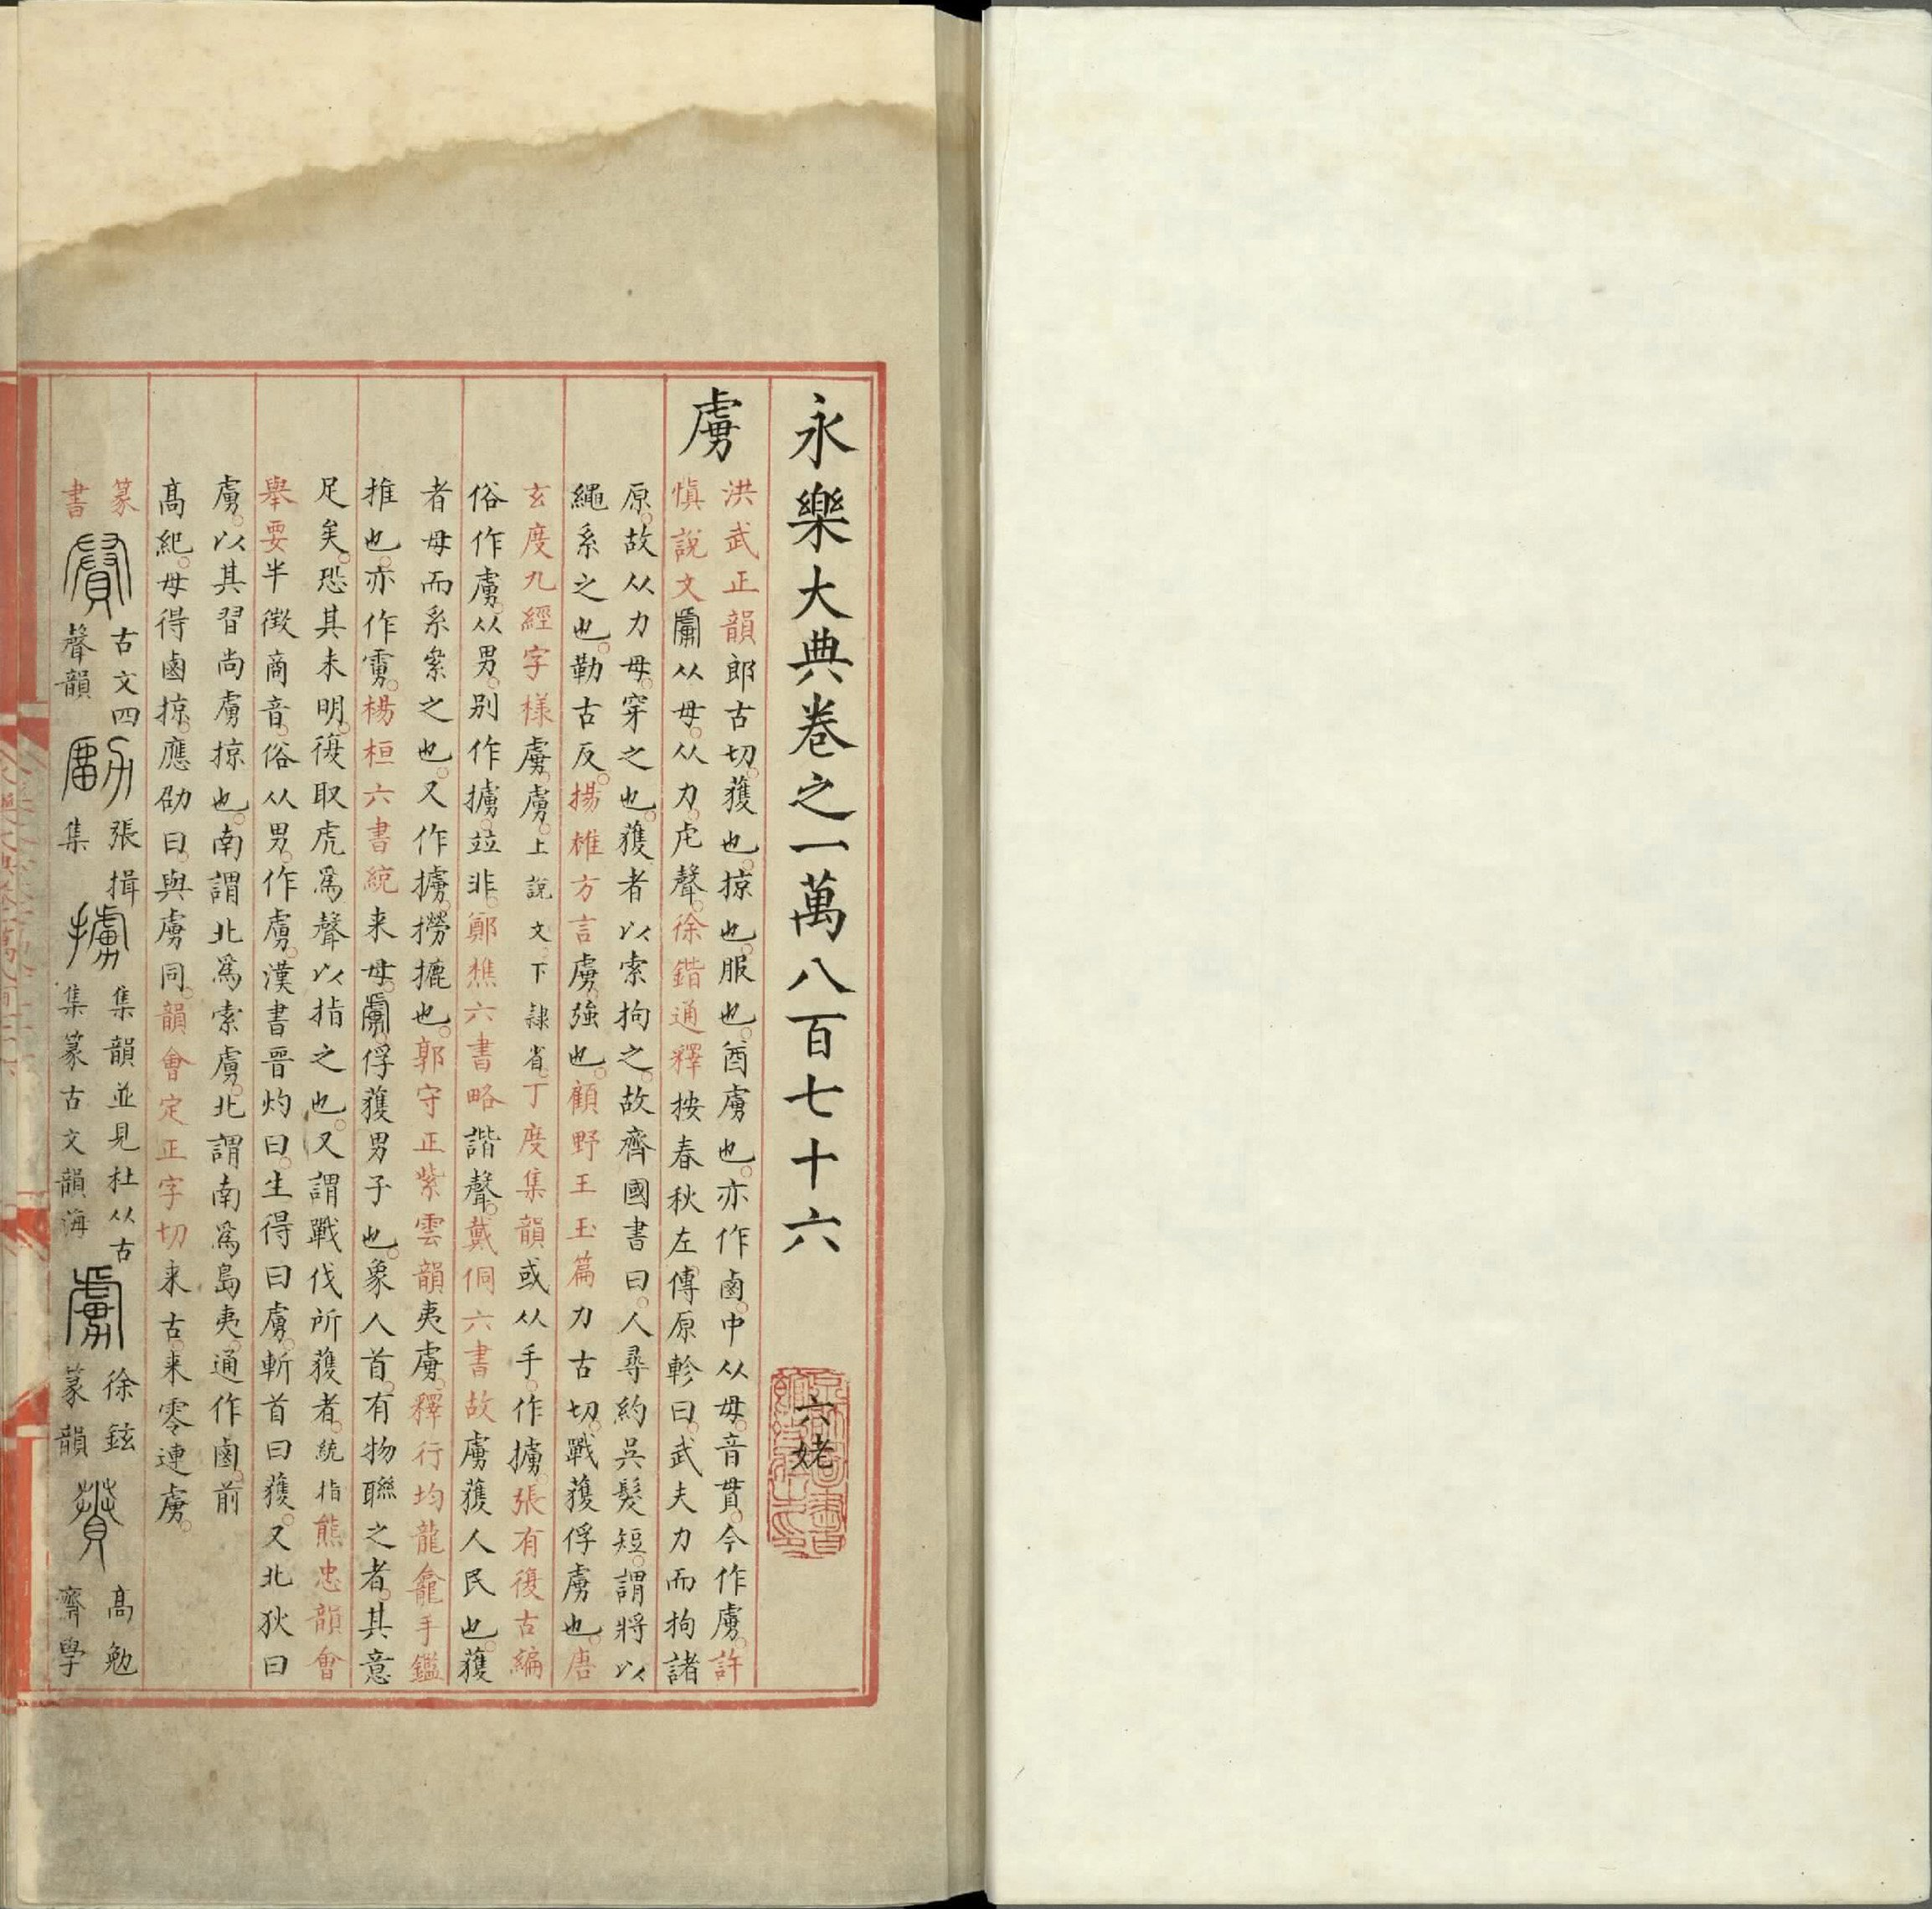 永樂大典卷之一萬八百七十六 六姥
虜
洪武正韻郎古切獲也掠也服也酋虜也亦作鹵中从毋音貫今作虜許
慎說文虜从毋从力虍聲徐鍇通釋按春秋左傳原軫曰武夫力而拘諸
原故从力毋穿之也獲者以索拘之故齊國書曰人尋約吳髮短謂將以
繩系之也勒古反揚雄方言虜強也顧野王玉篇力古切戰獲俘虜也唐
玄度九經字樣虜虜上說文下隸省丁度集韻或从手作擄張有復古編
俗作虜从男别作擄竝非鄭樵六書略諧聲戴侗六書故虜獲人民也獲
者毋而系纍之也又作擄撈摝也郭守正紫雲韻夷虜釋行均龍龕手鑑
推也亦作虜楊桓六書統来毋虜俘獲男子也象人首有物聯之者其意
足矣恐其未明復取虎爲聲以指之也又謂戰伐所獲者統指熊忠韻會
舉要半徵商音俗从男作虜漢書晉灼曰生得曰虜斬首曰獲又北狄曰
虜以其習尚虜掠也南謂北爲索虜北謂南爲島夷通作鹵前
髙紀毋得鹵掠應劭曰與虜同韻會定正字切来古来零連虜
篆書
古文四聲韻
張揖集
集韻並見杜从古集篆古文韻海
徐鉉篆韻
髙勉齊學